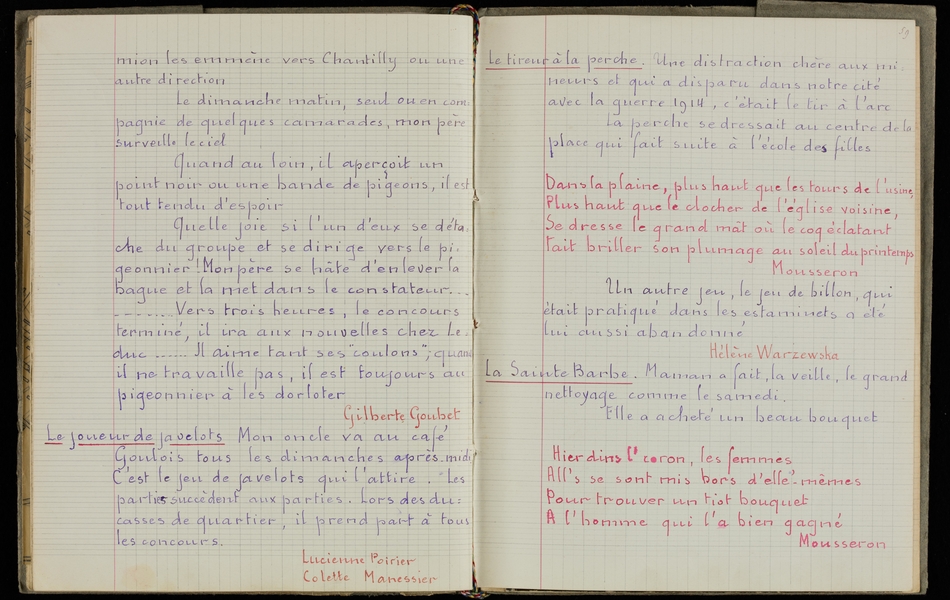 mion les emmène vers Chantilly ou une
autre direction
Le dimanche matin, seul ou en com-
pagnie de quelques camarades, mon père
surveille le ciel
Quand au loin, il aperçoit un
point noir ou une bande de pigeons, il est
tout tendu d'espoir
Quelle joie si l'un d'eux se déta-
che du groupe et se dirige vers le pi-
geonnier ! Mon père se hâte d'enlever la
bague et la met dans le constateur....
........ Vers trois heures, le concours
terminé, il ira aux nouvelles chez Le-
duc ...... Il aime tant ses "coulons"; quand
il ne travaille pas, il est toujours au
pigeonnier à les dorloter
Gilberte Goubet
Le joueur de javelots Mon oncle va au café
Goulois tous les dimanches après-midi
C'est le jeu de javelots qui l'attire. Les
parties succèdent aux parties. Lors des du-
casses de quartier, il prend part à tous
les concours.
Lucienne Poirier
Colette Manessier
59
Le tireur à la perche. Une distraction chère aux mi-
neurs et qui a disparu dans notre cité
avec la guerre 1914, c'était le tir à l'arc
La perche se dressait au centre de la
place qui fait suite à l'école des filles
Dans la plaine, plus haut que les tours de l'usine,
Plus haut que le clocher de l'église voisine,
Se dresse le grand mât où le coq éclatant
Fait briller son plumage au soleil du printemps
Mousseron
Un autre jeu, le jeu de billon, qui
était pratiqué dans les estaminets a été
lui aussi abandonné
Hélène Warzewska
La Sainte Barbe. Maman a fait, la veille, le grand
nettoyage comme le samedi.
Elle a acheté un beau bouquet
Hier dins l' coron, les femmes
All's se sont mis hors d'elle's-mêmes
Pour trouver un tiot bouquet
A l'homme qui l'a bien gagné
Mousseron